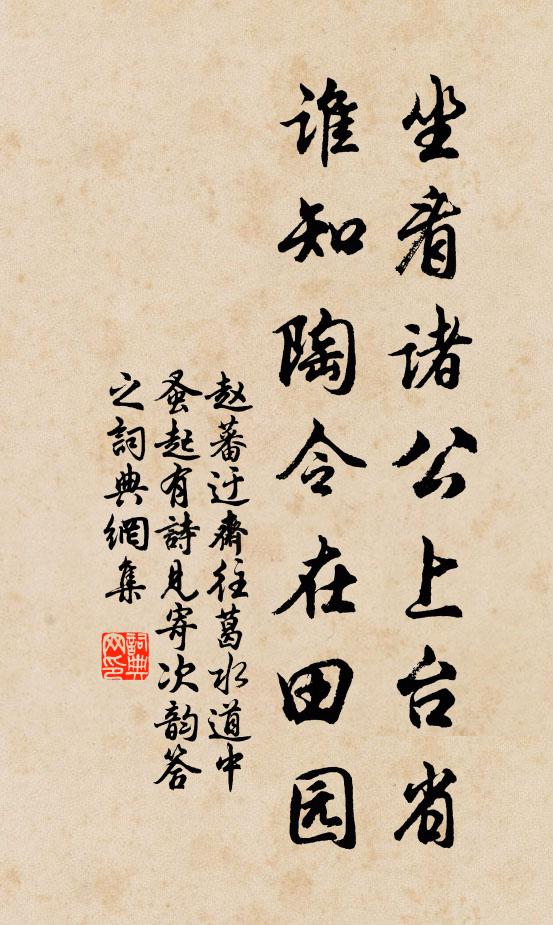 坐看諸公上台省
谁知陶令在田园
赵蕃迂齋往葛水道中
蚤起有詩見寄次韵答
之詞典網集
詞典網印